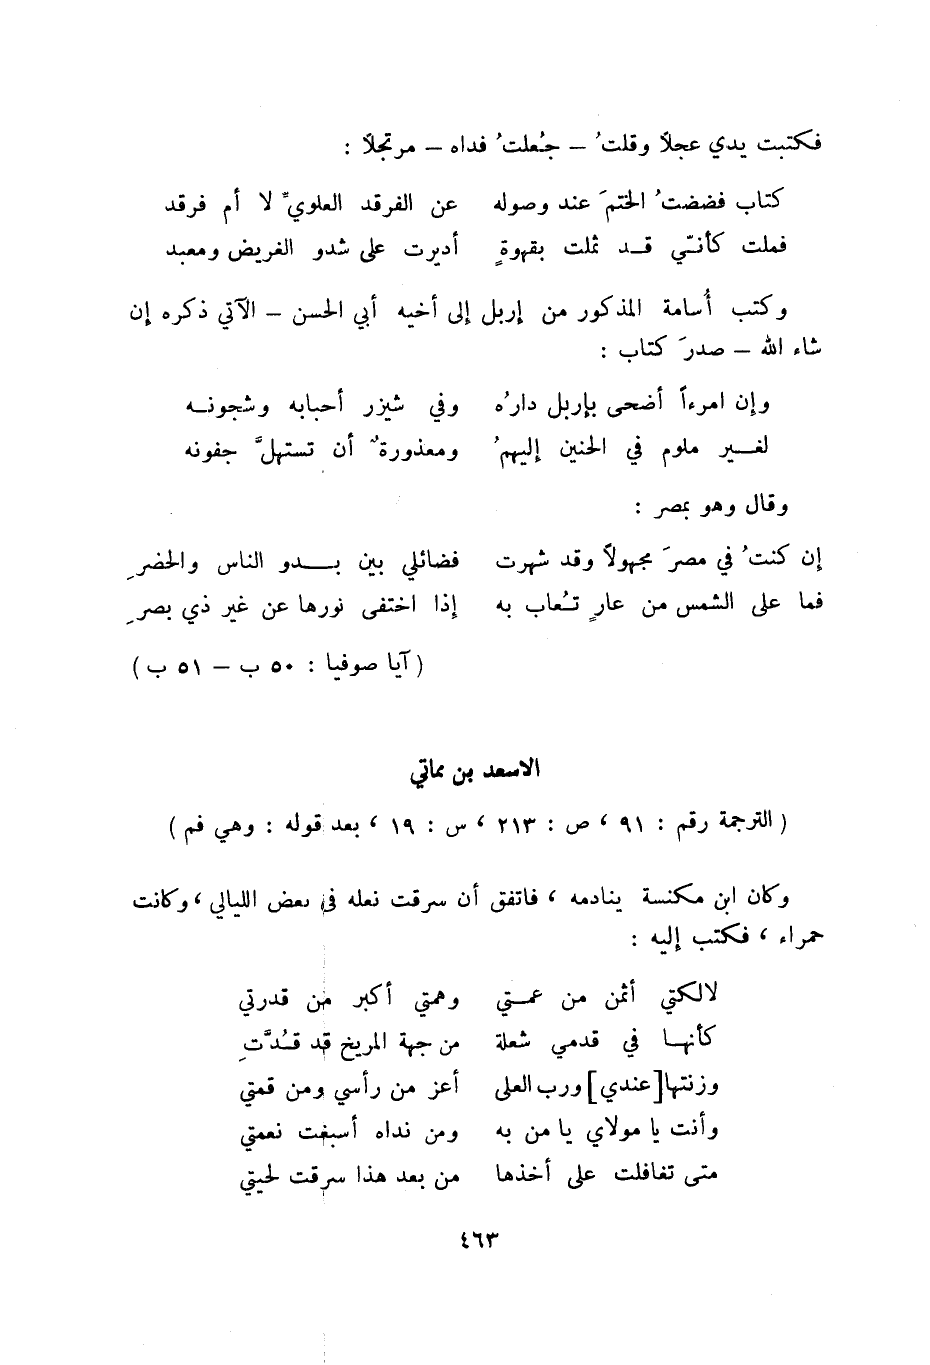 فكتبت يدي عجلاً وقلتُ – جُعلتُ فداه – مرتجلاً :
كتاب فضضتُ الختمَ عند وصوله عن الفرقد العلويّ لا أم فرقد
فملت كأنّني قد ثملت بقهوةٍ أديرت على شدو الغريض ومعبد
وكتب أُسامة المذكور من إربل إلى أخيه أبي الحسن – الآتي ذكره إن
شاء الله – صدرَ كتاب :
وإن امرءاً أضحى بإربل دارُه وفي شيزر أحبابه وشجونه
لغير ملوم في الحنين إليهمُ ومعذورةٌ أن تستهلَّ جفونه
وقال وهو بمصر :
إن كنتُ في مصرَ مجهولاً وقد شهرت فضائلي بين بدو الناس والحضرِ
فما على الشمس من عارٍ تُعاب به إذا اختفى نورها عن غير ذي بصرِ
( آيا صوفيا : ٥٠ ب – ٥١ ب )
الاسعد بن مماتي
( الترجمة رقم : ٩١ ، ص : ٢١٣ ، س : ١٩ ، بعد قوله : وهي فم )
وكان ابن مكنسة ينادمه ، فاتفق أن سرقت نعله في بعض الليالي ، وكانت
حمراء ، فكتب إليه :
لالكتي أثمن من عمتي وهمتي أكبر من قدرتي
كأنها في قدمي شعلة من جهة المريخ قد قُدَّتِ
وزنتها [عندي] ورب العلى أعز من رأسي ومن قمتي
وأنت يا مولاي يا من به ومن نداه أسبغت نعمتي
متى تغافلت على أخذها من بعد هذا سرقت لحيتي
٤٦٣